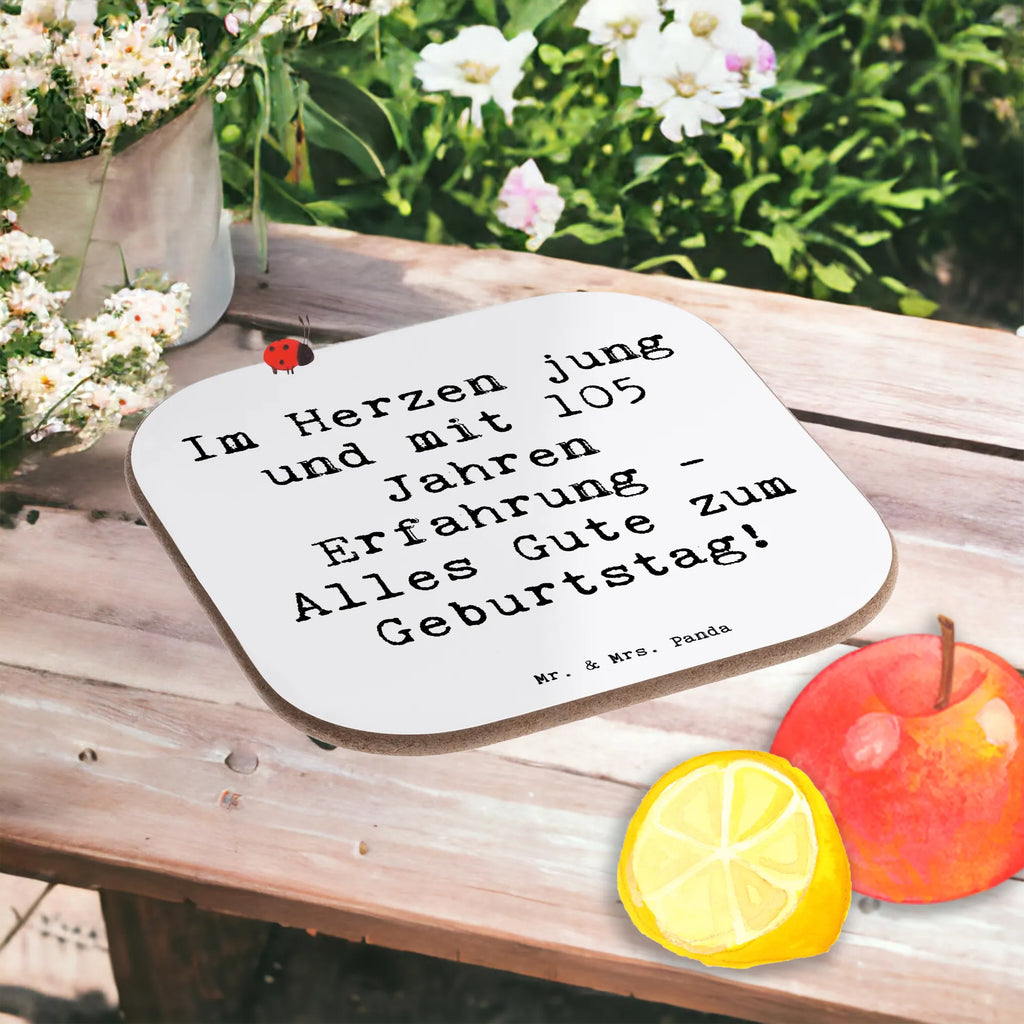 Im Herzen jung
und mit 105
Jahren
Erfahrung -
Alles Gute zum
Geburtstag!
Mr. & Mrs. Panda